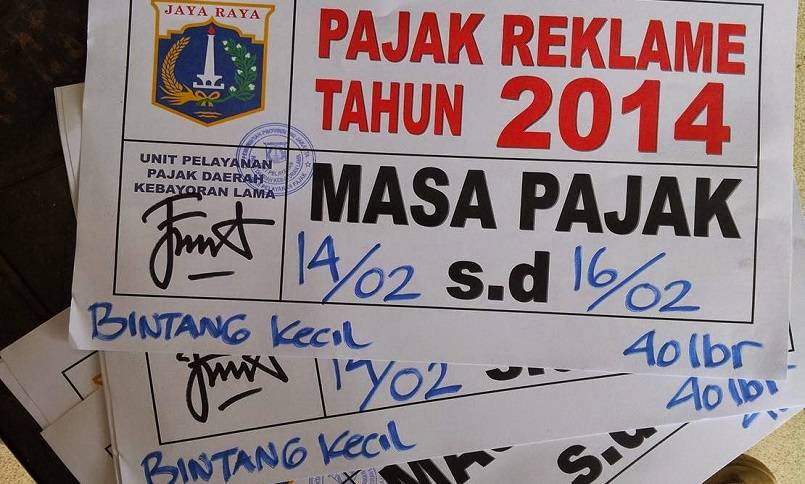 JAYA RAYA
PAJAK REKLAME
TAHUN 2014
UNIT PELAYANAN
PAJAK DAERAH
KEBAYORAN LAMA
MASA PAJAK
14/02 s.d 16/02
BINTANG Kecil
40 lbr
14/02
40 lbr
BINTANG Kecil
s.d